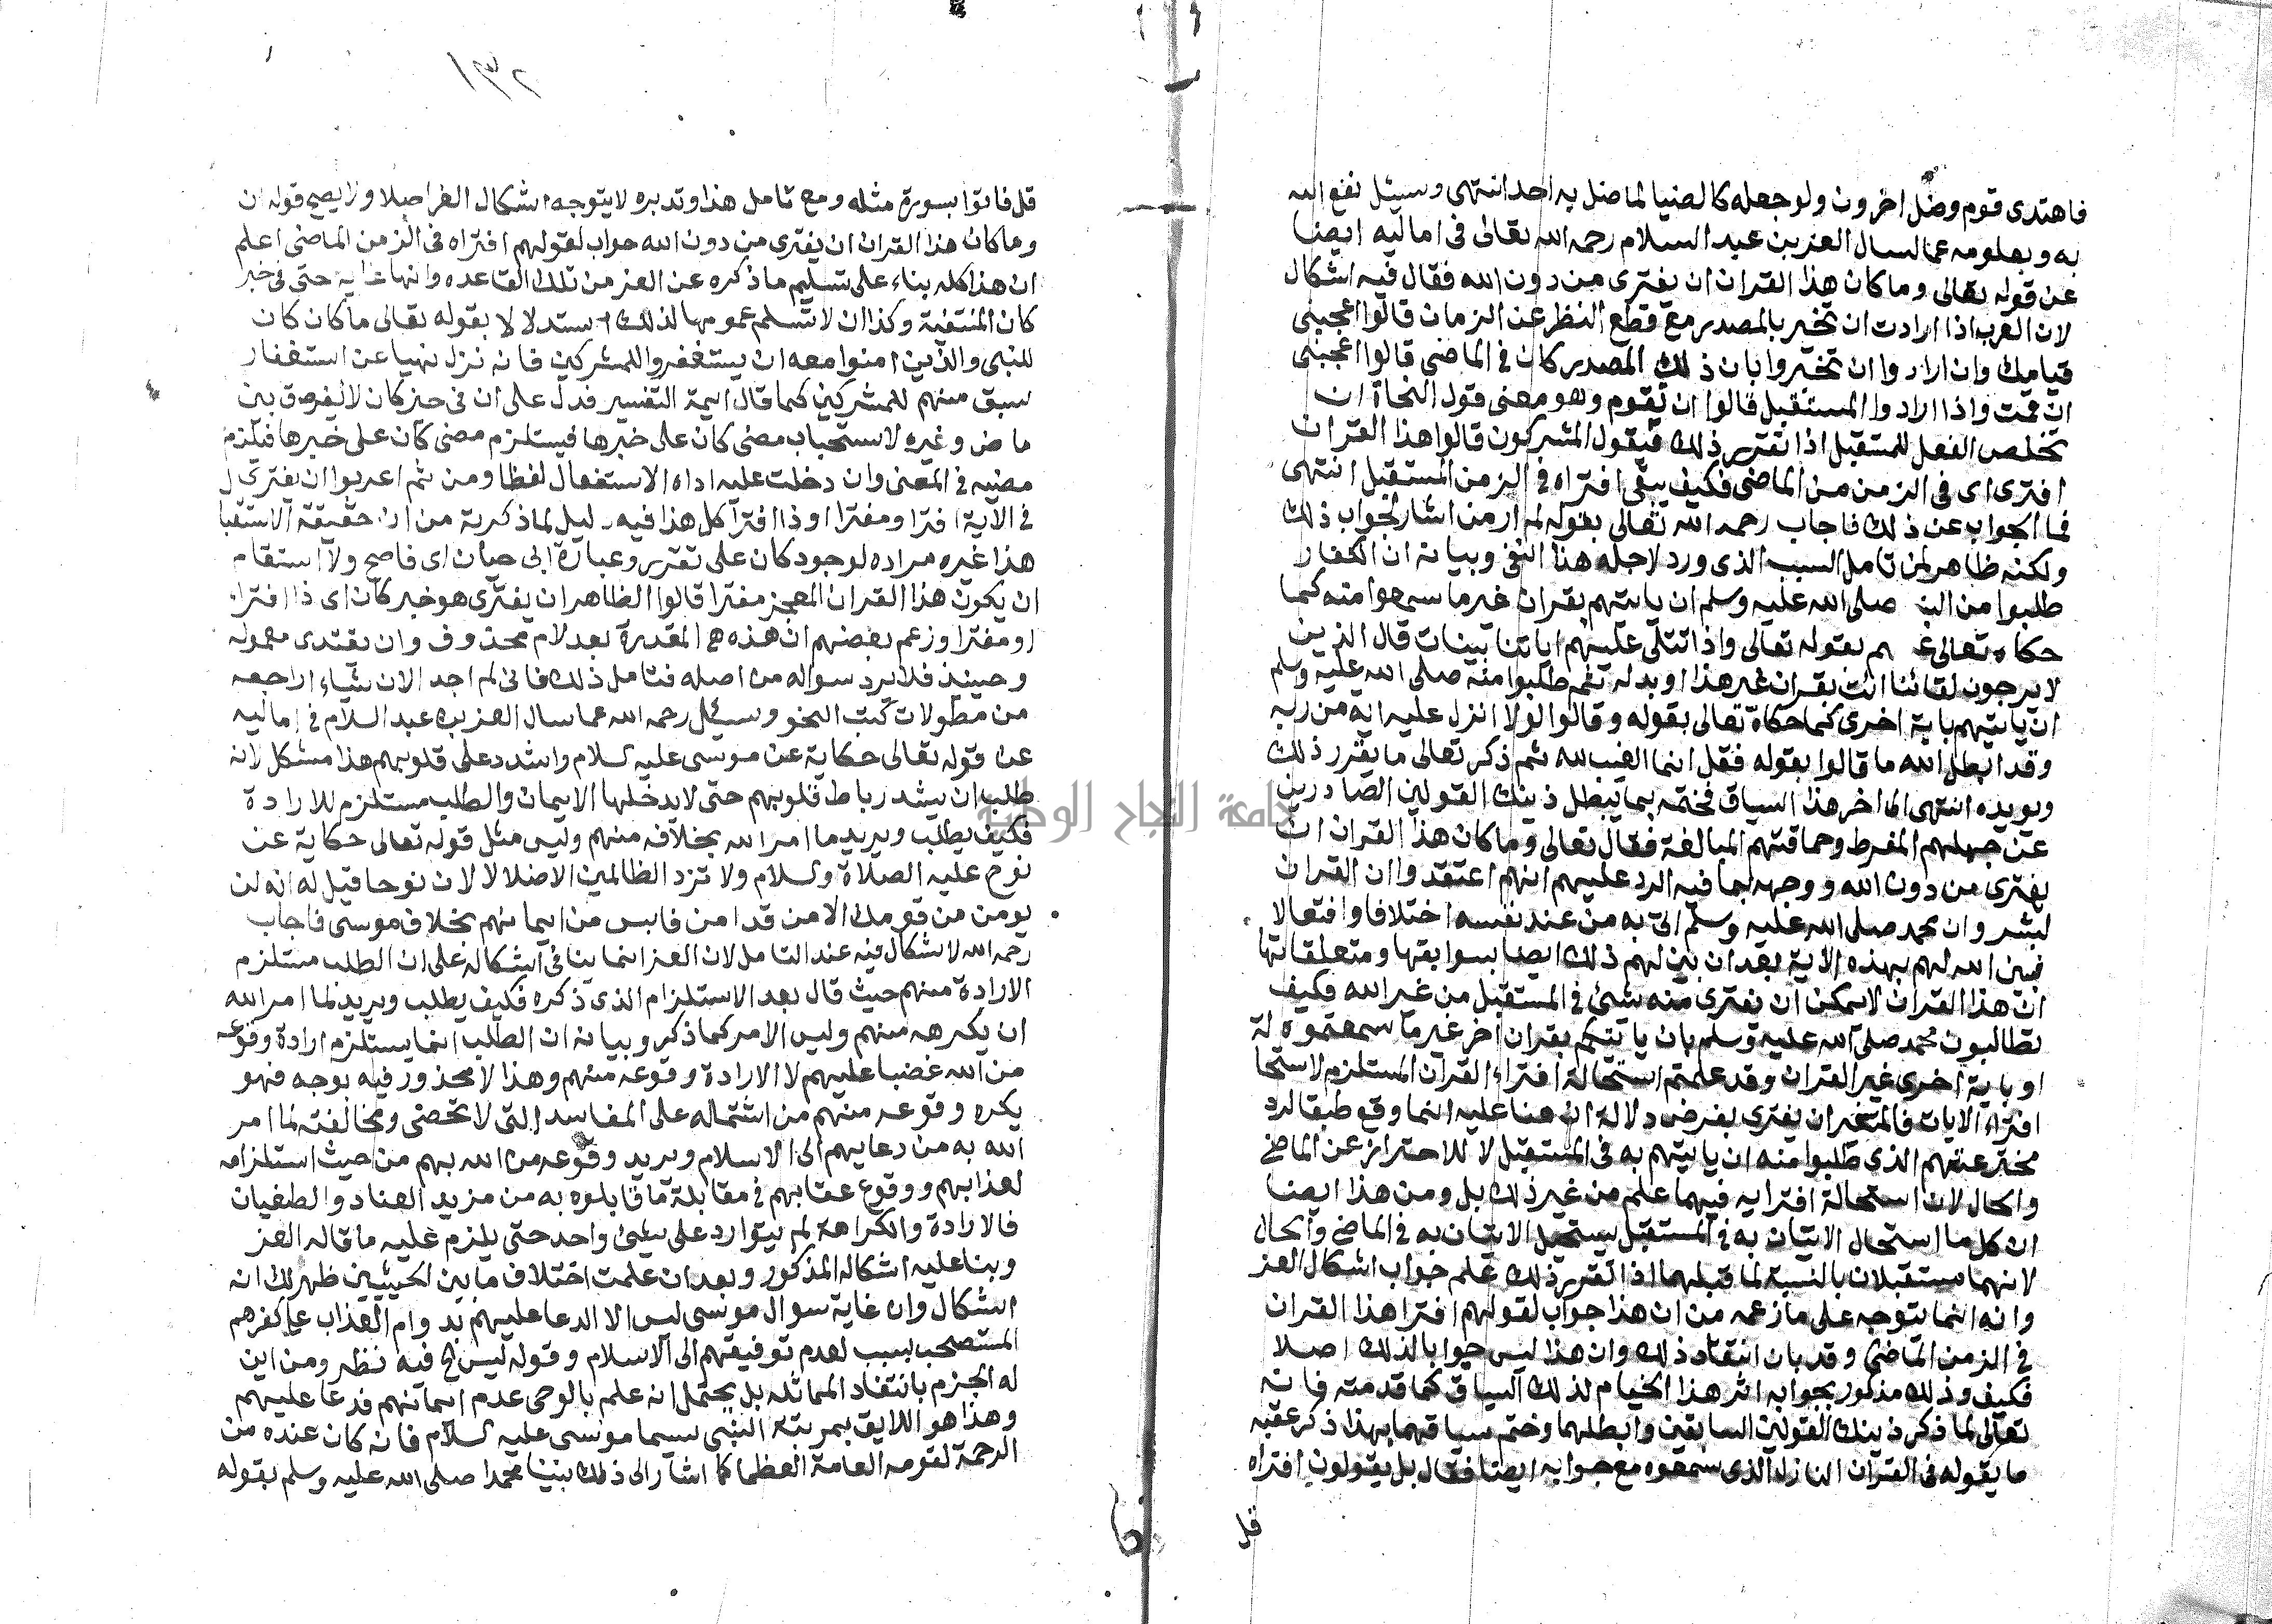 فاهتدى قوم وضل اخرون ولو جعله كالضيا لما ضل به احد انتهى وسيئل نفع الله
به وبعلومه عما لسال العز بن عبد السلام رحمه الله تعالى في اماليه ايضا
عن قوله تعالى وما كان هذا القران ان يفترى من دون الله فقال فيه اشكال
لان العرب اذا ارادت ان تخبر بالمصدر مع قطع النظر عن الزمان قالوا اعجبني
قيامك وان ارادوا ان تخبروا بان ذلك المصدر كان في الماضي قالوا اعجبني
ان قمت واذا ارادوا المستقبل قالوا ان تقوم وهو معنى قول النحاة ان
تخلص الفعل للمستقبل اذا تقرر ذلك فيقول المشركون قالوا هذا القران
افترى اى في الزمن من الماضي فكيف يبقى افتراه في الزمن المستقبل انتهى
فما الجواب عن ذلك فاجاب رحمه الله تعالى بقوله لم ار من اشار لجواب ذلك
ولكنه ظاهر لمن تامل السبب الذى ورد لاجله هذا النفي وبيانه ان الكفار
طلبوا من النبي صلى الله عليه وسلم ان ياتيهم بقران غير ما سمعوا منه كما
حكاه تعالى عنهم بقوله تعالى واذا تتلى عليهم اياتنا بينات قال الذين
لا يرجون لقائنا ائت بقران غير هذا او بدله ثم طلبوا منه صلى الله عليه وسلم
ان ياتيهم باية اخرى كما حكاه تعالى بقوله وقالوا لولا انزل عليه اية من ربه
وقد ابطل الله ما قالوا بقوله فقل انما الغيب لله ثم ذكر تعالى ما يقرر ذلك
ويويده انتهى الى اخر هذا السياق فختمه بما يبطل ذينك القولين الصادرين
عن جهلهم المفرط وحماقتهم المبالغة فقال تعالى وما كان هذا القران ان
يفترى من دون الله ووجهه بما فيه الرد عليهم انهم اعتقدوا ان القران
لبشر وان محمد صلى الله عليه وسلم اتى به من عند نفسه اختلافا وافتعالا
فبين الله لهم بهذه الاية بعد ان بين لهم ذلك ايضا بسوابقها ومتعلقاتها
ان هذا القران لا يمكن ان يفترى منه شئ في المستقبل من غير الله فكيف
تطالبون محمد صلى الله عليه وسلم بان ياتيكم بقران اخر غير ما سمعتموه له
او باية اخرى غير القران وقد علمتم استحالة افتراء القران المستلزم لاستحا
افتراء الايات فالمتغير ان يفترى بفرض دلالة ان هنا عليه انما وقع طبقا لرد
مخترعتهم الذى طلبوا منه ان ياتيهم به في المستقبل لا للاحتراز عن الماضي
والحال لان استحالة افترايه فيهما علم من غير ذلك بل ومن هذا ايضا
ان كل ما استحال الاتيان به في المستقبل يستحيل الاتيان به في الماضي والحال
لانهما مستقبلان بالنسبة لما قبلهما اذا تقرر ذلك علم جواب اشكال العز
وانه انما يتوجه على ما زعمه من ان هذا جواب لقولهم افترا هذا القران
في الزمن الماضي وقد بان انتفاد ذلك وان هذا ليس جوابا لذلك اصلا
فكيف وذلك مذكور بجوابه اثر هذا الختام لذلك السياق كما قدمته فانه
تعالى لما ذكر ذينك القولين السابقين وابطلهما وختم سياقهما بهذا ذكر عقبه
ما يقوله في القران النازل الذى سمعوه مع جوابه ايضا فقال بل يقولون افتراه
قل
١٣٢
قل فاتوا بسورة مثله ومع تامل هذا وتدبره لا يتوجه اشكال العز اصلا ولا يصح قوله ان
وما كان هذا القران ان يفترى من دون الله جواب لقولهم افتراه في الزمن الماضي اعلم
ان هذا كله بناء على تسليم ما ذكره عن العز من تلك القاعده وانها غاية حتى في خبر
كان المنتفية وكذا ان لا نسلم عمومها لذلك استدلالا بقوله تعالى ما كان
للنبي والذين امنوا معه ان يستغفروا للمشركين فانه نزل نهيا عن استغفار
سبق منهم للمشركين كما قال ايمة التفسير فدل على ان في حيز كان لا يفرق بين
ماض وغيره لاستحباب مضى كان على خبرها فيستلزم مضى كان على خبرها فيلزم
مضيه في المعنى وان دخلت عليه اداه الاستفعال لفظا ومن ثم اعربوا ان يفترى
في الاية افترا ومفترا او ذا افترا كل هذا فيه دليل لما ذكرته من ان حقيقة الاستقبا
هذا غيره مراده لوجود كان على تقرير وعبارة ابى حيان اى فاصح ولا استقام
ان يكون هذا القران المعجز مفترا قالوا الظاهر ان يفترى هو خبر كان اى ذا افترا
او مفترا وزعم بعضهم ان هذه هي المقدرة بعد لام محذوف وان يفتدى معموله
وحينيذ فلا يرد سواله من اصله فتامل ذلك فاني لم اجد الان شياء اراجعه
من مطولات كتب النحو وسيئل رحمه الله عما سال العز بن عبد السلام في اماليه
عن قوله تعالى حكاية عن موسى عليه السلام واشدد على قلوبهم هذا مشكل لانه
طلب ان يشد رباط قلوبهم حتى لا يدخلها الايمان والطلب مستلزم للارادة
فكيف يطلب ويريد ما امر الله بخلافه منهم وليس مثل قوله تعالى حكاية عن
نوح عليه الصلاة والسلام ولا تزد الظالمين الا ضلالا لان نوحا قيل له انه لن
يومن من قومك الا من قد امن فايس من ايمانهم بخلاف موسى فاجاب
رحمه الله لا اشكال فيه عند التامل لان العز انما بنا في اشكاله على ان الطلب مستلزم
الارادة منهم حيث قال بعد الاستلزام الذى ذكره فكيف يطلب ويريد لما امر الله
ان يكرهه منهم وليس الامر كما ذكر وبيانه ان الطلب انما يستلزم ارادة وقوعه
من الله غضبا عليهم لا الارادة وقوعه منهم وهذا لا محذور فيه بوجه فهو
يكره وقوعه منهم من اشتماله على المفاسد التى لا تحصى ومخالفته لما امر
الله به من دعايهم الى الاسلام ويريد وقوعه من الله بهم من حيث استلزامه
لعذابهم ووقوع عقابهم في مقابلة ما قابلوه به من مزيد العناد والطغيان
فالارادة والكراهة لم يتوارد على شئ واحد حتى يلزم عليه ما قاله العز
وبنا عليه اشكاله المذكور وبعد ان علمت اختلاف ما بين الحيثيين ظهر لك انه
اشكال وان غاية سوال موسى ليس الا الدعا عليهم بدوام العذاب على كفرهم
المستصحب بسبب لعدم توفيقهم الى الاسلام وقوله ليس الخ فيه نظر ومن اين
له الجزم بانتفاد المماثله بل يحتمل انه علم بالوحى عدم ايمانهم فدعا عليهم
وهذا هو اللايق بمرتبة النبي سيما موسى عليه السلام فانه كان عنده من
الرحمة لقومه العامة العظما كما اشار الى ذلك نبينا محمدا صلى الله عليه وسلم بقوله
جامعة النجاح الوطنية